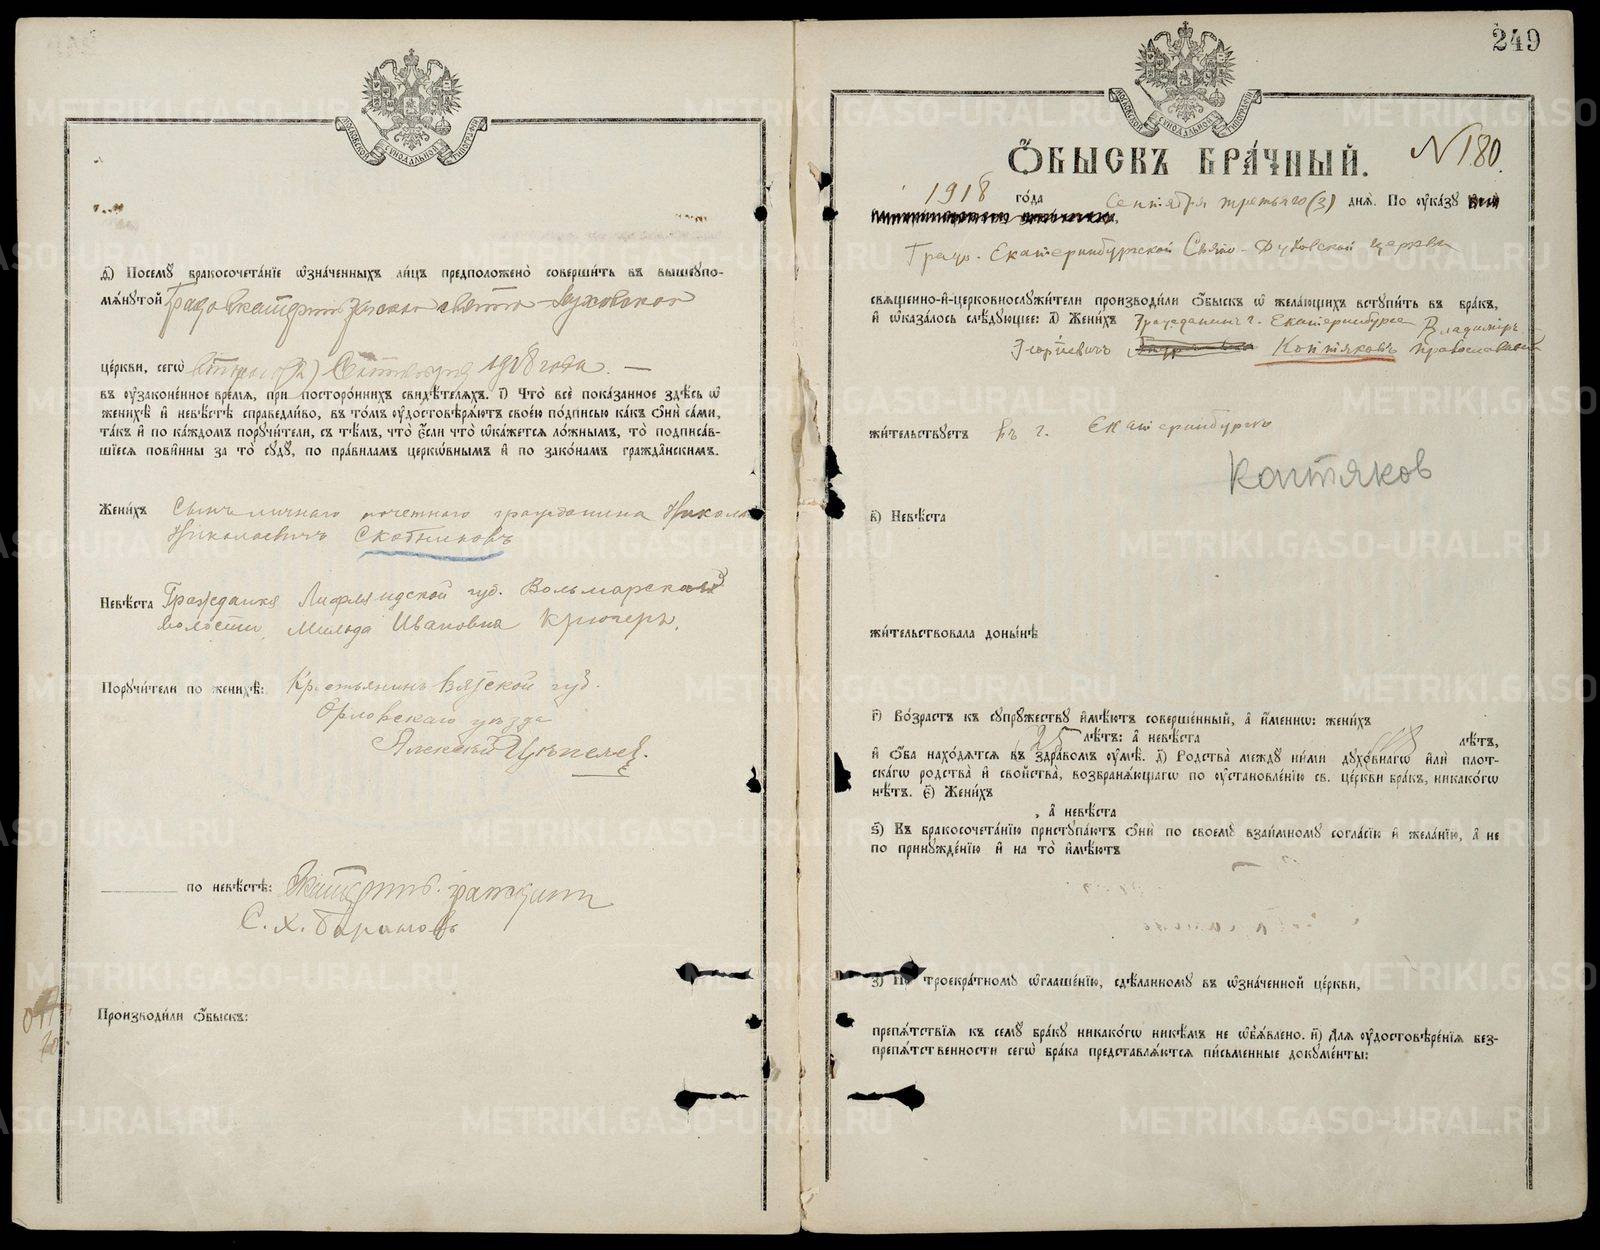 МОСКОВСКОЙ СѴНОДАЛЬНОЙ ТИПОГРАФІИ
д҃) Посемꙋ̀ бракосочета́нїе ѡ҆зна́ченныхъ ли́цъ предположено̀ соверши́ть въ вышеупо-
мѧ́нутой Градо Екатеринбургской Свято-Духовской
це́ркви, сегѡ̀ второго (2) Сентября 1918 года. —
въ ᲂу҆зако́ненное вре́мѧ, при посторо́ннихъ свидѣ́телѧхъ. і҃) Что̀ всѐ пока́занное здѣ́сь ѡ҆
женихѣ̀ и҆ невѣ́стѣ справедли́во, въ то́мъ ᲂу҆достовѣрѧ́ютъ свое́ю по́дписью ка́къ ѻ҆нѝ са́ми,
та́къ и҆ по ка́ждомъ поручи́тели, съ тѣ́мъ, что̀ є҆́сли что̀ ѡ҆ка́жется ло́жнымъ, то̀ подписа́в-
шїеся пови́нны за то̀ сꙋдꙋ̀, по пра́виламъ церко́внымъ и҆ по зако́намъ гражда́нскимъ.
Жени́хъ Сынъ личнаго почетнаго гражданина Николай
Николаевичъ Скотниковъ
Невѣ́ста Гражданка Лифляндской губ. Вольмарской
волости, Мильда Ивановна Крюгеръ.
Поручи́тели по женихѣ̀: Крестьянинъ Вятской губ.
Орловскаго уѣзда
Алексѣй
по невѣ́стѣ: Екатеринб. гражданин
С. Х. Барановъ
Производи́ли ѻ҆́быскъ:
249
МОСКОВСКОЙ СѴНОДАЛЬНОЙ ТИПОГРАФІИ
Ѻ҆́БЫСКЪ БРА́ЧНЫЙ. N 180.
1918 го́да Сентября третьяго (3) днѧ̀. По ᲂу҆ка́зу
Градо-Екатеринбургской Свято-Духовской церкви
свѧще́нно-и҆-церковнослꙋжи́тели производи́ли ѻ҆́быскъ ѡ҆ жела́ющихъ встꙋпи́ть въ бра́къ,
и҆ ѡ҆каза́лось слѣ́дующее: а҃) Жени́хъ Гражданинъ г. Екатеринбурга Владимiръ
Георгiевичъ Коптяковъ православный
жи́тельствуетъ въ г. Екатеринбургѣ
Коптяков
в҃) Невѣ́ста
жи́тельствовала доны́нѣ
г҃) Во́зрастъ къ сꙋпрꙋ́жествꙋ и҆мѣ́ютъ соверше́нный, а҆ и҆́менно: жени́хъ
25 лѣ́тъ: а҆ невѣ́ста 18 лѣ́тъ,
и҆ ѻ҆́ба нахо́дѧтся въ здра́вомъ ᲂу҆мѣ̀. д҃) Родства̀ междꙋ̀ ни́ми дꙋхо́внагѡ и҆лѝ плот-
ска́гѡ родства̀ и҆ сво́йства, возбранѧ́ющагѡ по ᲂу҆становле́нїю св. це́ркви бра́къ, никако́гѡ
нѣ́тъ. є҃) Жени́хъ
, а҆ невѣ́ста
ѕ҃) Въ бракосочета́нїю пристꙋпа́ютъ ѻ҆нѝ по своемꙋ̀ взаи́мномꙋ согла́сїю и҆ жела́нїю, а҆ не
по принꙋжде́нїю и҆ на то̀ и҆мѣ́ютъ
з҃) По троекра́тномꙋ ѡ҆глаше́нїю, сдѣ́ланномꙋ въ ѡ҆зна́ченной це́ркви,
препѧ́тствїѧ къ семꙋ̀ бра́кꙋ никако́гѡ никѣ́мъ не ѡ҆б̾ѧ́влено. и҃) Длѧ ᲂу҆достовѣре́нїѧ без-
препѧ́тственности сегѡ̀ бра́ка представлѧ́ются пи́сьменные докꙋме́нты:
METRIKI.GASO-URAL.RU